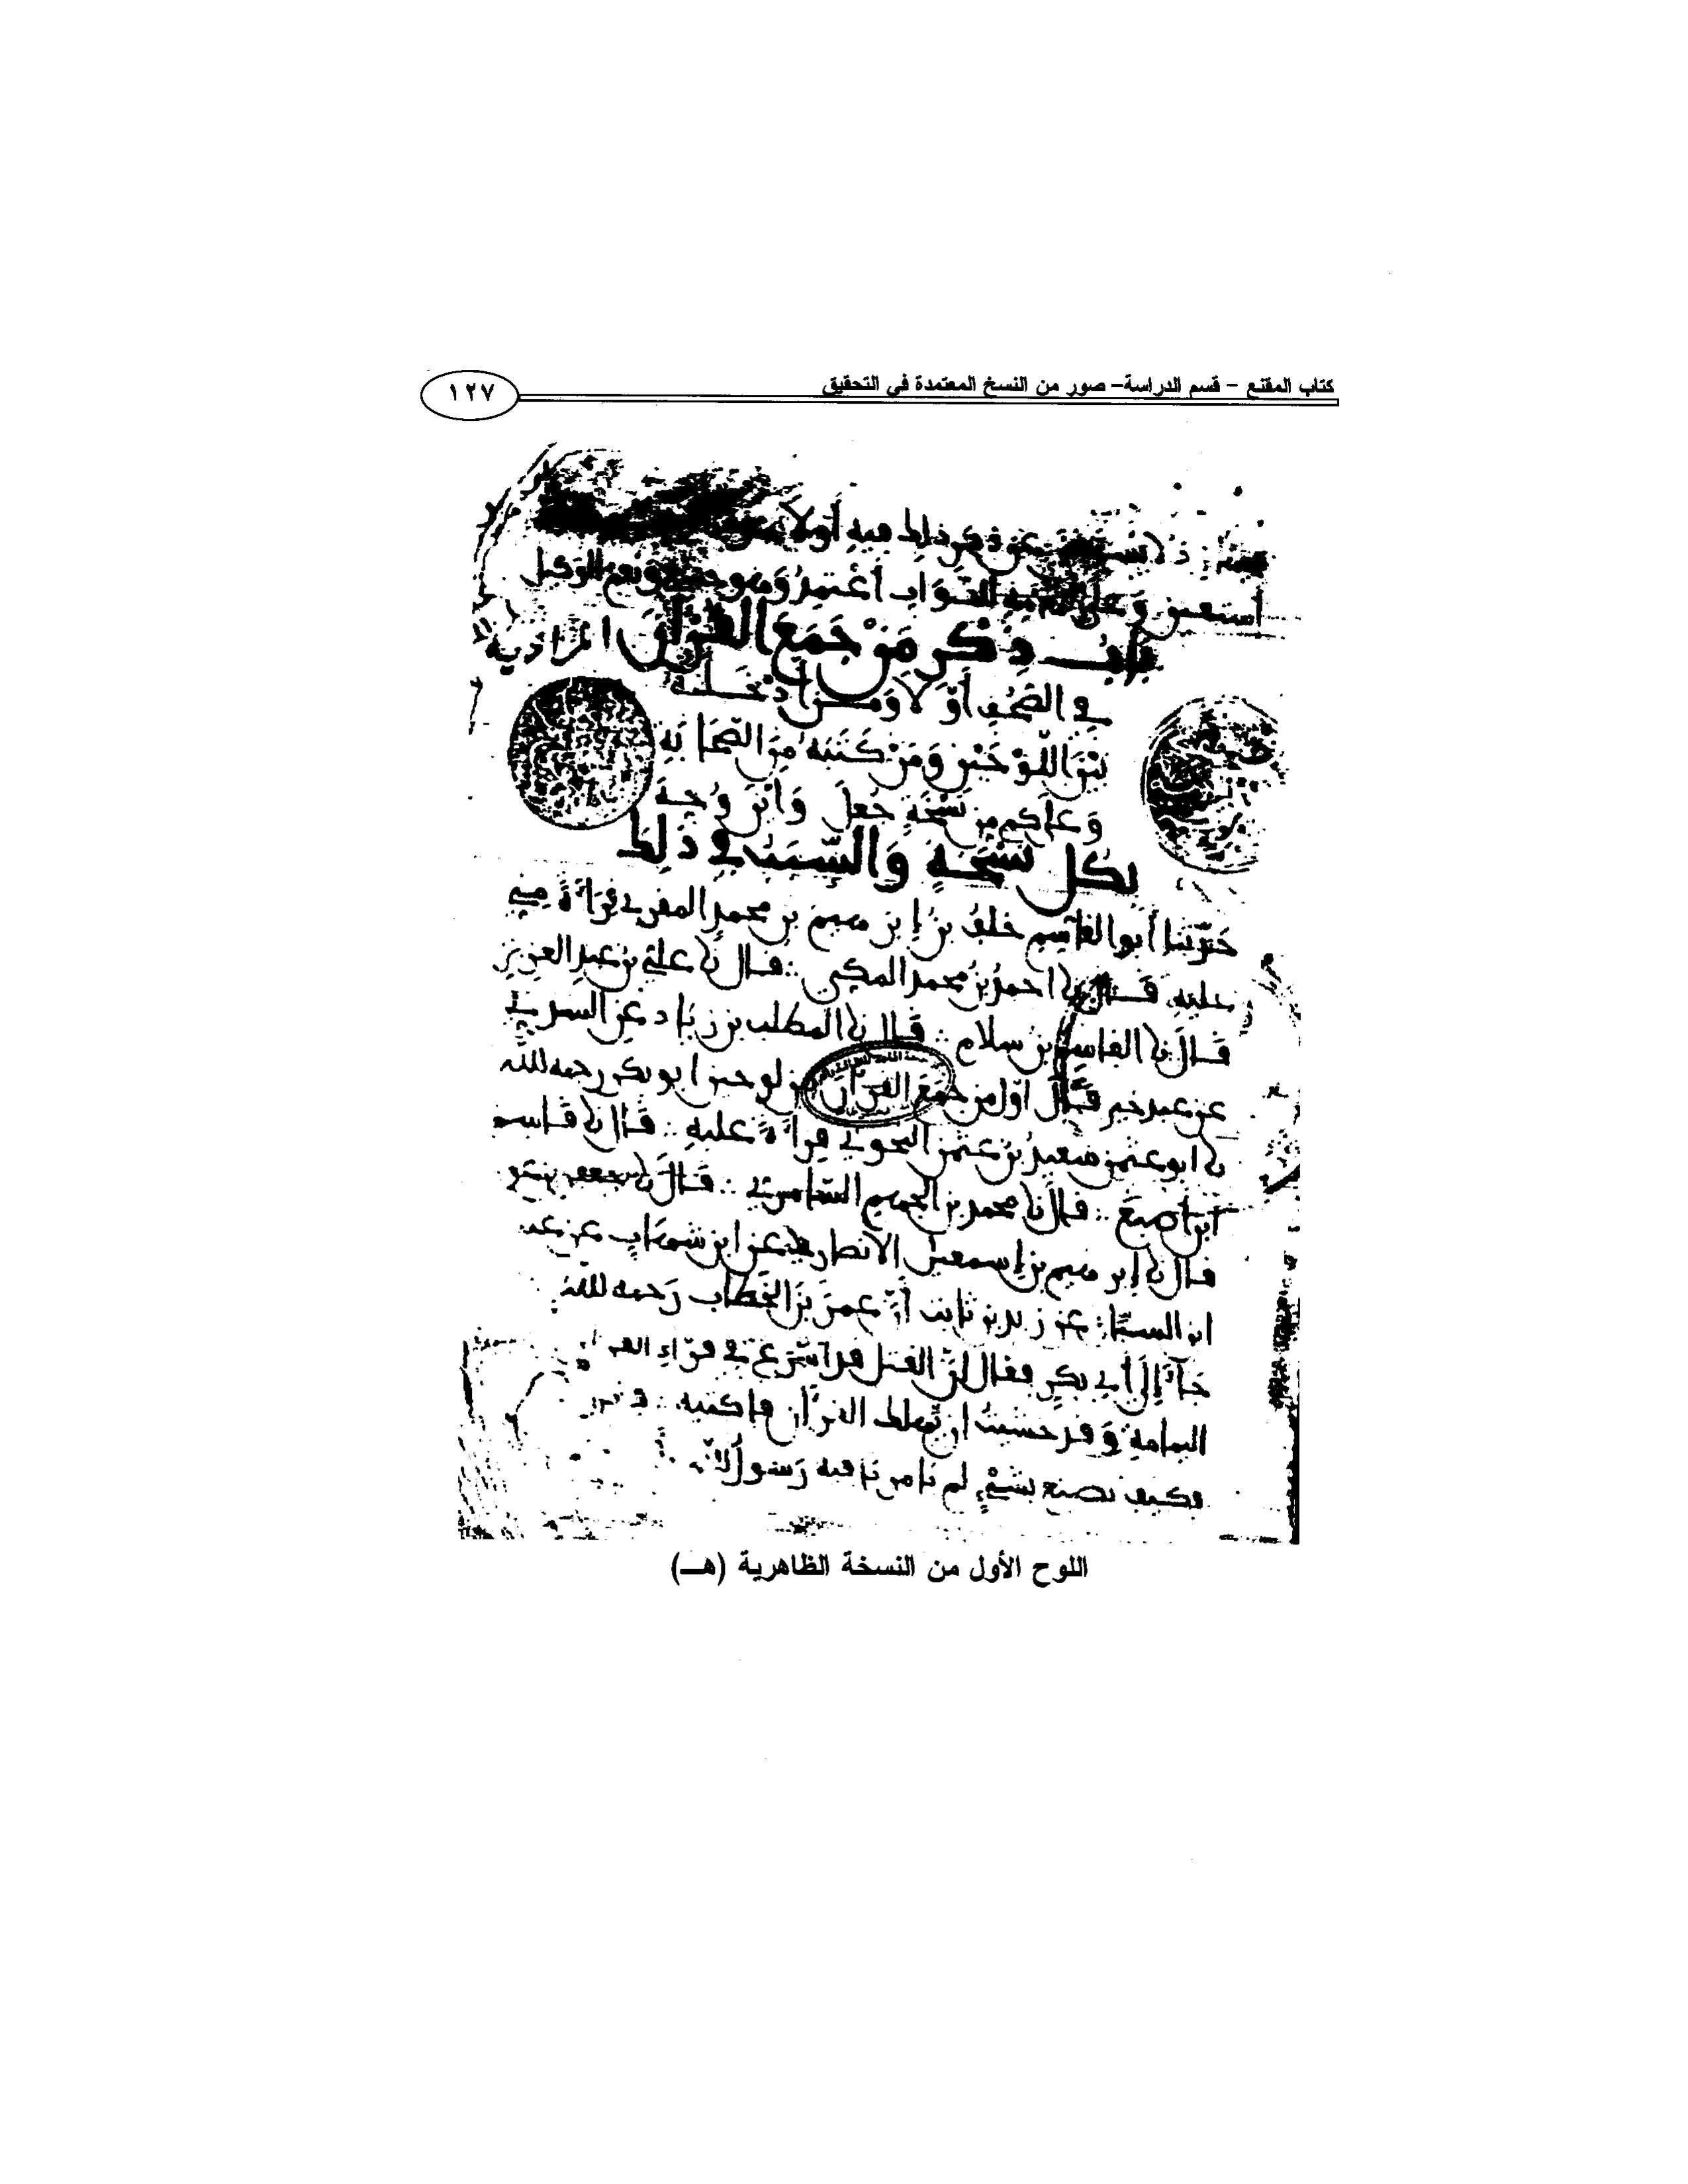 كتاب المقنع - قسم الدراسة- صور من النسخ المعتمدة في التحقيق
١٢٧
ذكر ذلك فيه أولا
أستعين و الصواب أعتمد وهو حسبي ونعم الوكيل
باب ذكر من جمع القرآن
في الصحف أولا ومن أدخله
بين اللوحين ومن كتبه من الصحابة
وعلى كم من نسخة جعل وأين وجه
بكل نسخة والسبب في ذلك
حدثنا أبو القاسم خلف بن إبرهيم بن محمد المقرئ قراءة مني
عليه قال نا احمد بن محمد المكي قال نا علي بن عبد العزيز
قال نا القاسم بن سلام قال نا المطلب بن زياد عن السدي
عن عبد خير قال أول من جمع القرآن بين لوحين ابو بكر رحمه الله
نا ابو عثمن سعيد بن عثمن النحوي قراءة عليه قال نا قاسم
ابن اصبغ قال نا محمد بن الجهم السامري قال نا جعفر بن عو
قال نا إبرهيم بن إسمعيل الانصاري عن ابن شهاب عن
ابن السبا عن زيد بن ثابت أن عمر بن الخطاب رحمه الله
جاء إلى أبي بكر فقال إن القتل قد أسرع في قراء
اليمامة وقد خشيت ان يهلك القرآن فاكتبه
فكيف نصنع بشيء لم يامرنا فيه رسول الله
اللوح الأول من النسخة الظاهرية (هـ)